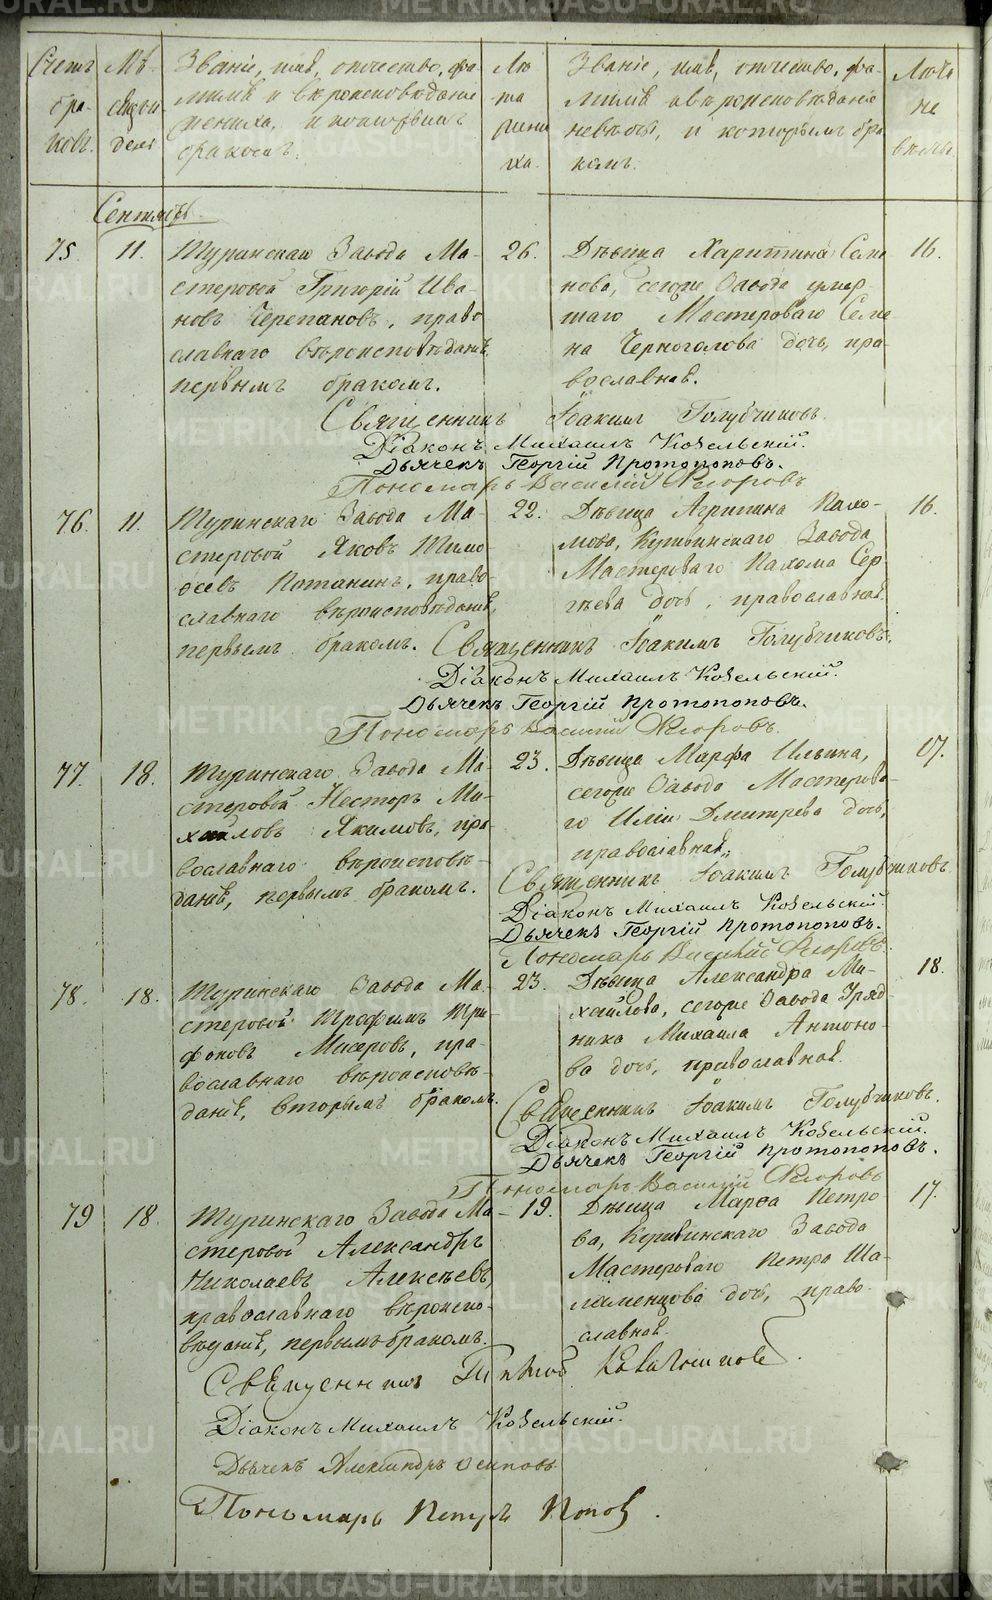 Счетъ браковъ.
Мѣсяцъ и день
Званіе, имя, отчество, фамилія и вѣроисповѣданіе жениха, и которымъ бракомъ.
Лѣта жениха.
Званіе, имя, отчество, фамилія и вѣроисповѣданіе невѣсты, и которымъ бракомъ.
Лѣта невѣсты.
Сентябрь
75. 11.
Туринскаго Завода Ма-
стеровой Григорій Ива-
новъ Черепановъ, право
славнаго вѣроисповѣданія,
первымъ бракомъ.
26.
Дѣвица Харитина Семе
нова, сегоже Завода умер-
шаго Мастероваго Семе
на Черноголова дочь, пра-
вославная.
16.
Священникъ Іоакимъ Голубчиковъ.
Діаконъ Михаилъ Козельскій.
Дьячекъ Георгій Протопоповъ.
Пономарь Василій Ѳедоровъ
76. 11.
Туринскаго Завода Ма-
стеровой Яковъ Тимо-
ѳеевъ Потанинъ, право-
славнаго вѣроисповѣданія,
первымъ бракомъ.
22.
Дѣвица Агрипина Пахо-
мова, Кушвинскаго Завода
Мастероваго Пахома Сер-
гѣева дочь, православная.
16.
Священникъ Іоакимъ Голубчиковъ.
Діаконъ Михаилъ Козельскій.
Дьячекъ Георгій Протопоповъ.
Пономарь Василій Ѳедоровъ.
77. 18.
Туринскаго Завода Ма-
стеровой Несторъ Ми-
хайловъ Якимовъ, пра-
вославнаго вѣроисповѣ-
данія, первымъ бракомъ.
23.
Дѣвица Марфа Ильина,
сегоже Завода Мастерова-
го Ильи Дмитрева дочь,
православная.
17.
Священникъ Іоакимъ Голубчиковъ
Діаконъ Михаилъ Козельскій.
Дьячекъ Георгій Протопоповъ.
Пономарь Василій Ѳедоровъ.
78. 18.
Туринскаго Завода Ма-
стеровой Трофимъ Три
фоновъ Мисеровъ, пра-
вославнаго вѣроисповѣ-
данія, вторымъ бракомъ.
23.
Дѣвица Александра Ми-
хайлова, сегоже Завода Уряд
ника Михаила Антоно-
ва дочь, православная.
18.
Священникъ Іоакимъ Голубчиковъ.
Діаконъ Михаилъ Козельскій.
Дьячекъ Георгій Протопоповъ.
Пономарь Василій Ѳедоровъ
79 18.
Туринскаго Завода Ма
стеровой Александръ
Николаевъ Алексѣевъ,
православнаго вѣроиспо-
вѣданія, первымъ бракомъ.
19.
Дѣвица Марѳа Петро-
ва, Кушвинскаго Завода
Мастероваго Петра Ша-
ламенцова дочь, право-
славная.
17.
Священникъ
Діаконъ Михаилъ Козельскій.
Дьячекъ Александръ Осиповъ
Пономарь Петръ Поповъ.
METRIKI.GASO-URAL.RU